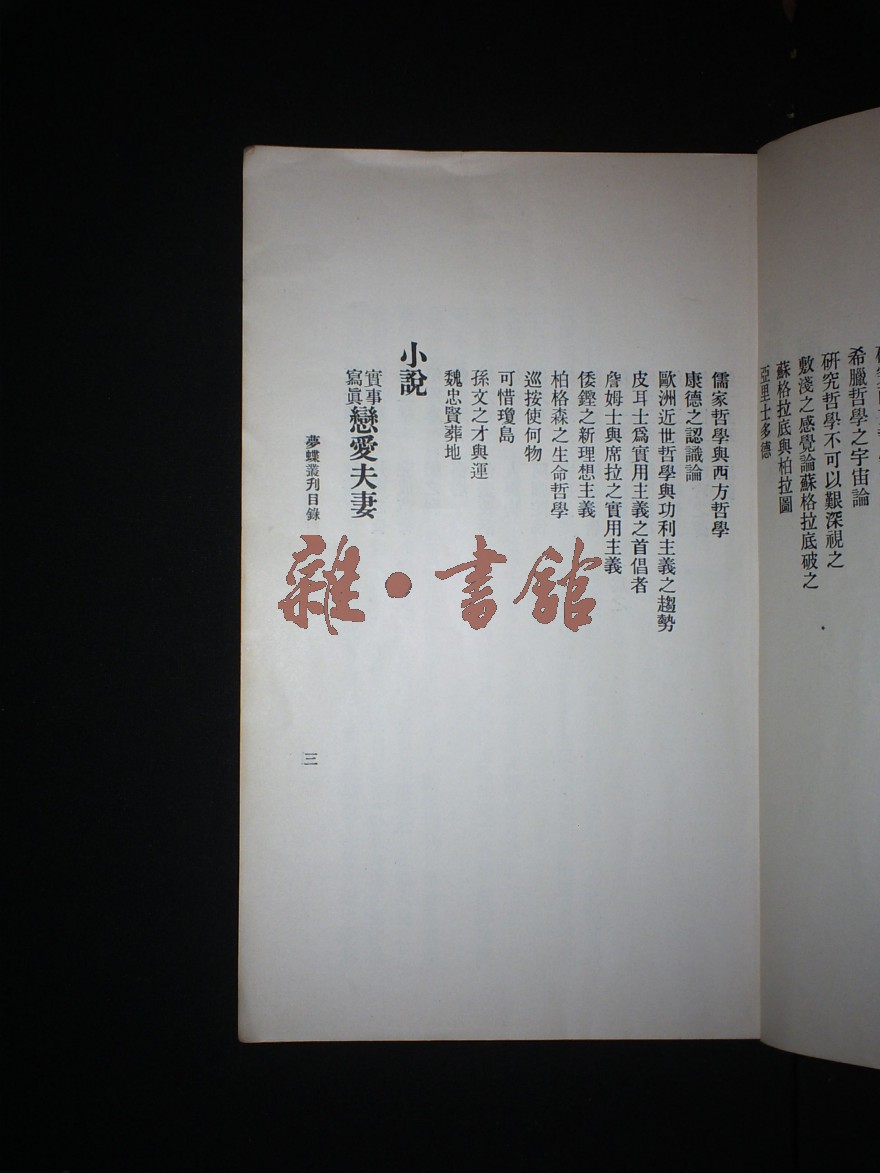 希臘哲學之宇宙論
研究哲學不可以艱深視之
敷淺之感覺論蘇格拉底破之
蘇格拉底與柏拉圖
亞里士多德
儒家哲學與西方哲學
康德之認識論
歐洲近世哲學與功利主義之趨勢
皮耳士爲實用主義之首倡者
詹姆士與席拉之實用主義
倭鏗之新理想主義
柏格森之生命哲學
巡按使何物
可惜瓊島
孫文之才與運
魏忠賢葬地
小說
實事寫眞戀愛夫妻
夢蝶叢刋目錄
三
雜·書館